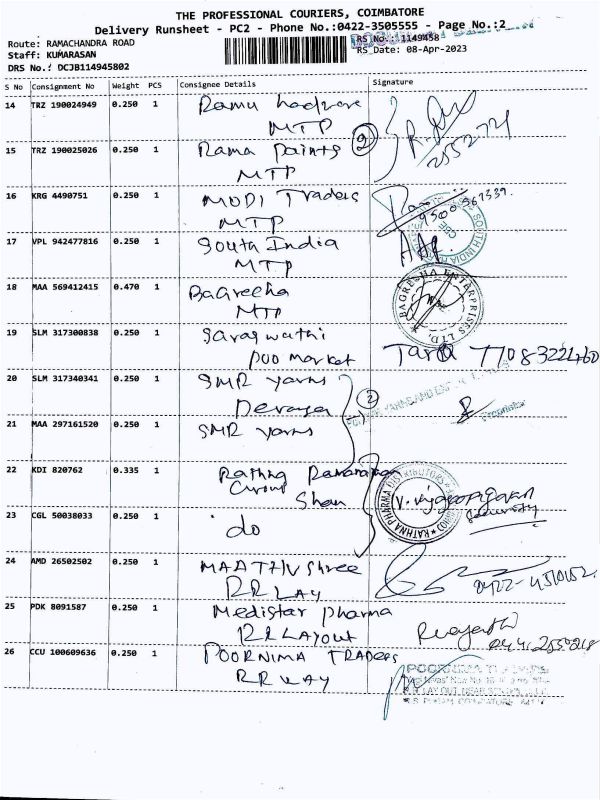 THE PROFESSIONAL COURIERS, COIMBATORE
Delivery Runsheet - PC2 - Phone No.:0422-3505555 - Page No.:2
Route: RAMACHANDRA ROAD
RS No.: 1149458
Staff: KUMARASAN
RS Date: 08-Apr-2023
DRS No.: DCJB114945802
S No Consignment No Weight PCS Consignee Details Signature
14 TRZ 190024949 0.250 1 Ramu
MTP
2552774
15 TRZ 190025026 0.250 1 Rama Paints
MTP
2
16 KRG 4490751 0.250 1 MODI Traders
MTP
17 VPL 942477816 0.250 1 South India
MTP
SOUTH INDIA
CBE
18 MAA 569412415 0.470 1 Bagreeha
MTP
BAGRECHA ENTERPRISES LTD.
19 SLM 317300838 0.250 1 Saraswathi
poo market
20 SLM 317340341 0.250 1 SMR yarns
2
YARNS AND
Proprietor
21 MAA 297161520 0.250 1 SMR yarns
22 KDI 820762 0.335 1 Rathna
Shan
RATHNA PHARMA DISTRIBUTORS
Security
23 CGL 50038033 0.250 1 do
24 AMD 26502502 0.250 1 Shree
RR LAY
25 PDK 8091587 0.250 1 Medistar pharma
RR Layout
26 CCU 100609636 0.250 1 POORNIMA TRADERS
RR LAY
POORNIMA TRADERS